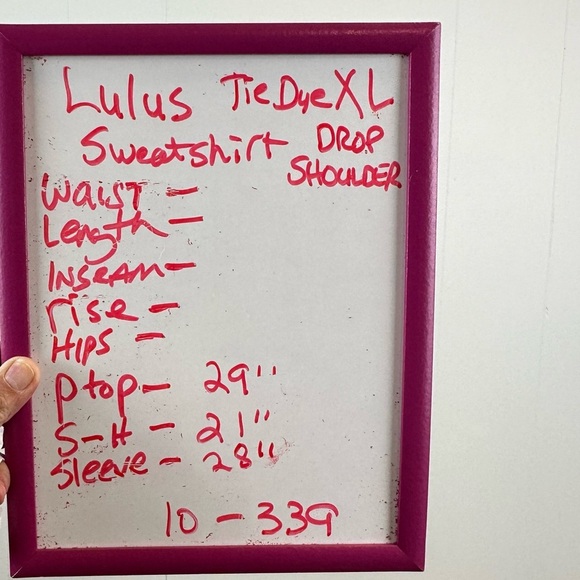 Lulus TieDye XL
Sweatshirt DROP SHOULDER
WAIST -
Length -
INSEAM -
rise -
HIPS -
Ptop - 29"
S-H - 21"
Sleeve - 28"
10 - 339